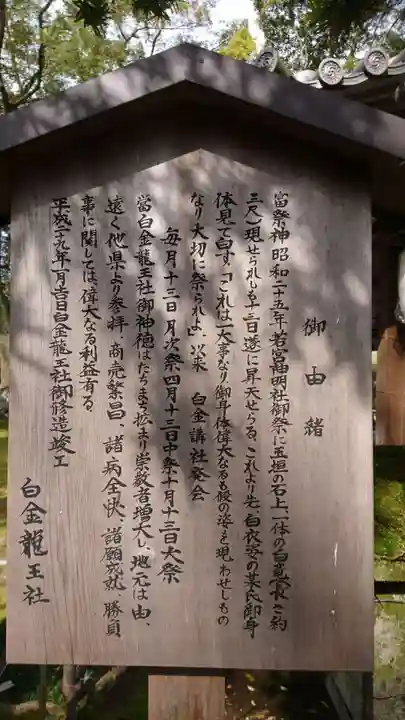 御由緒
當祭神昭和二十五年若宮神明社御祭に玉垣の石上、一体の白竜(長さ約
三尺)現せられしも十三日遂に昇天せらる、これより先、白衣姿の某氏御身
体見て白す「これは一大事なり御身体偉大なるも仮の姿を現わせしもの
なり大切に祭られよ」以来 白金講社発会
毎月十三日月次祭四月十三日中祭十月十三日大祭
當白金龍王社御神徳はたちまち拡まり崇敬者増大し、地元は由、
遠く他県より参拝、商売繁昌、諸病全快、諸願成就、勝負
事に関しては偉大なる利益有る
平成二九年一月吉日白金龍王社御修造竣工
白金龍王社